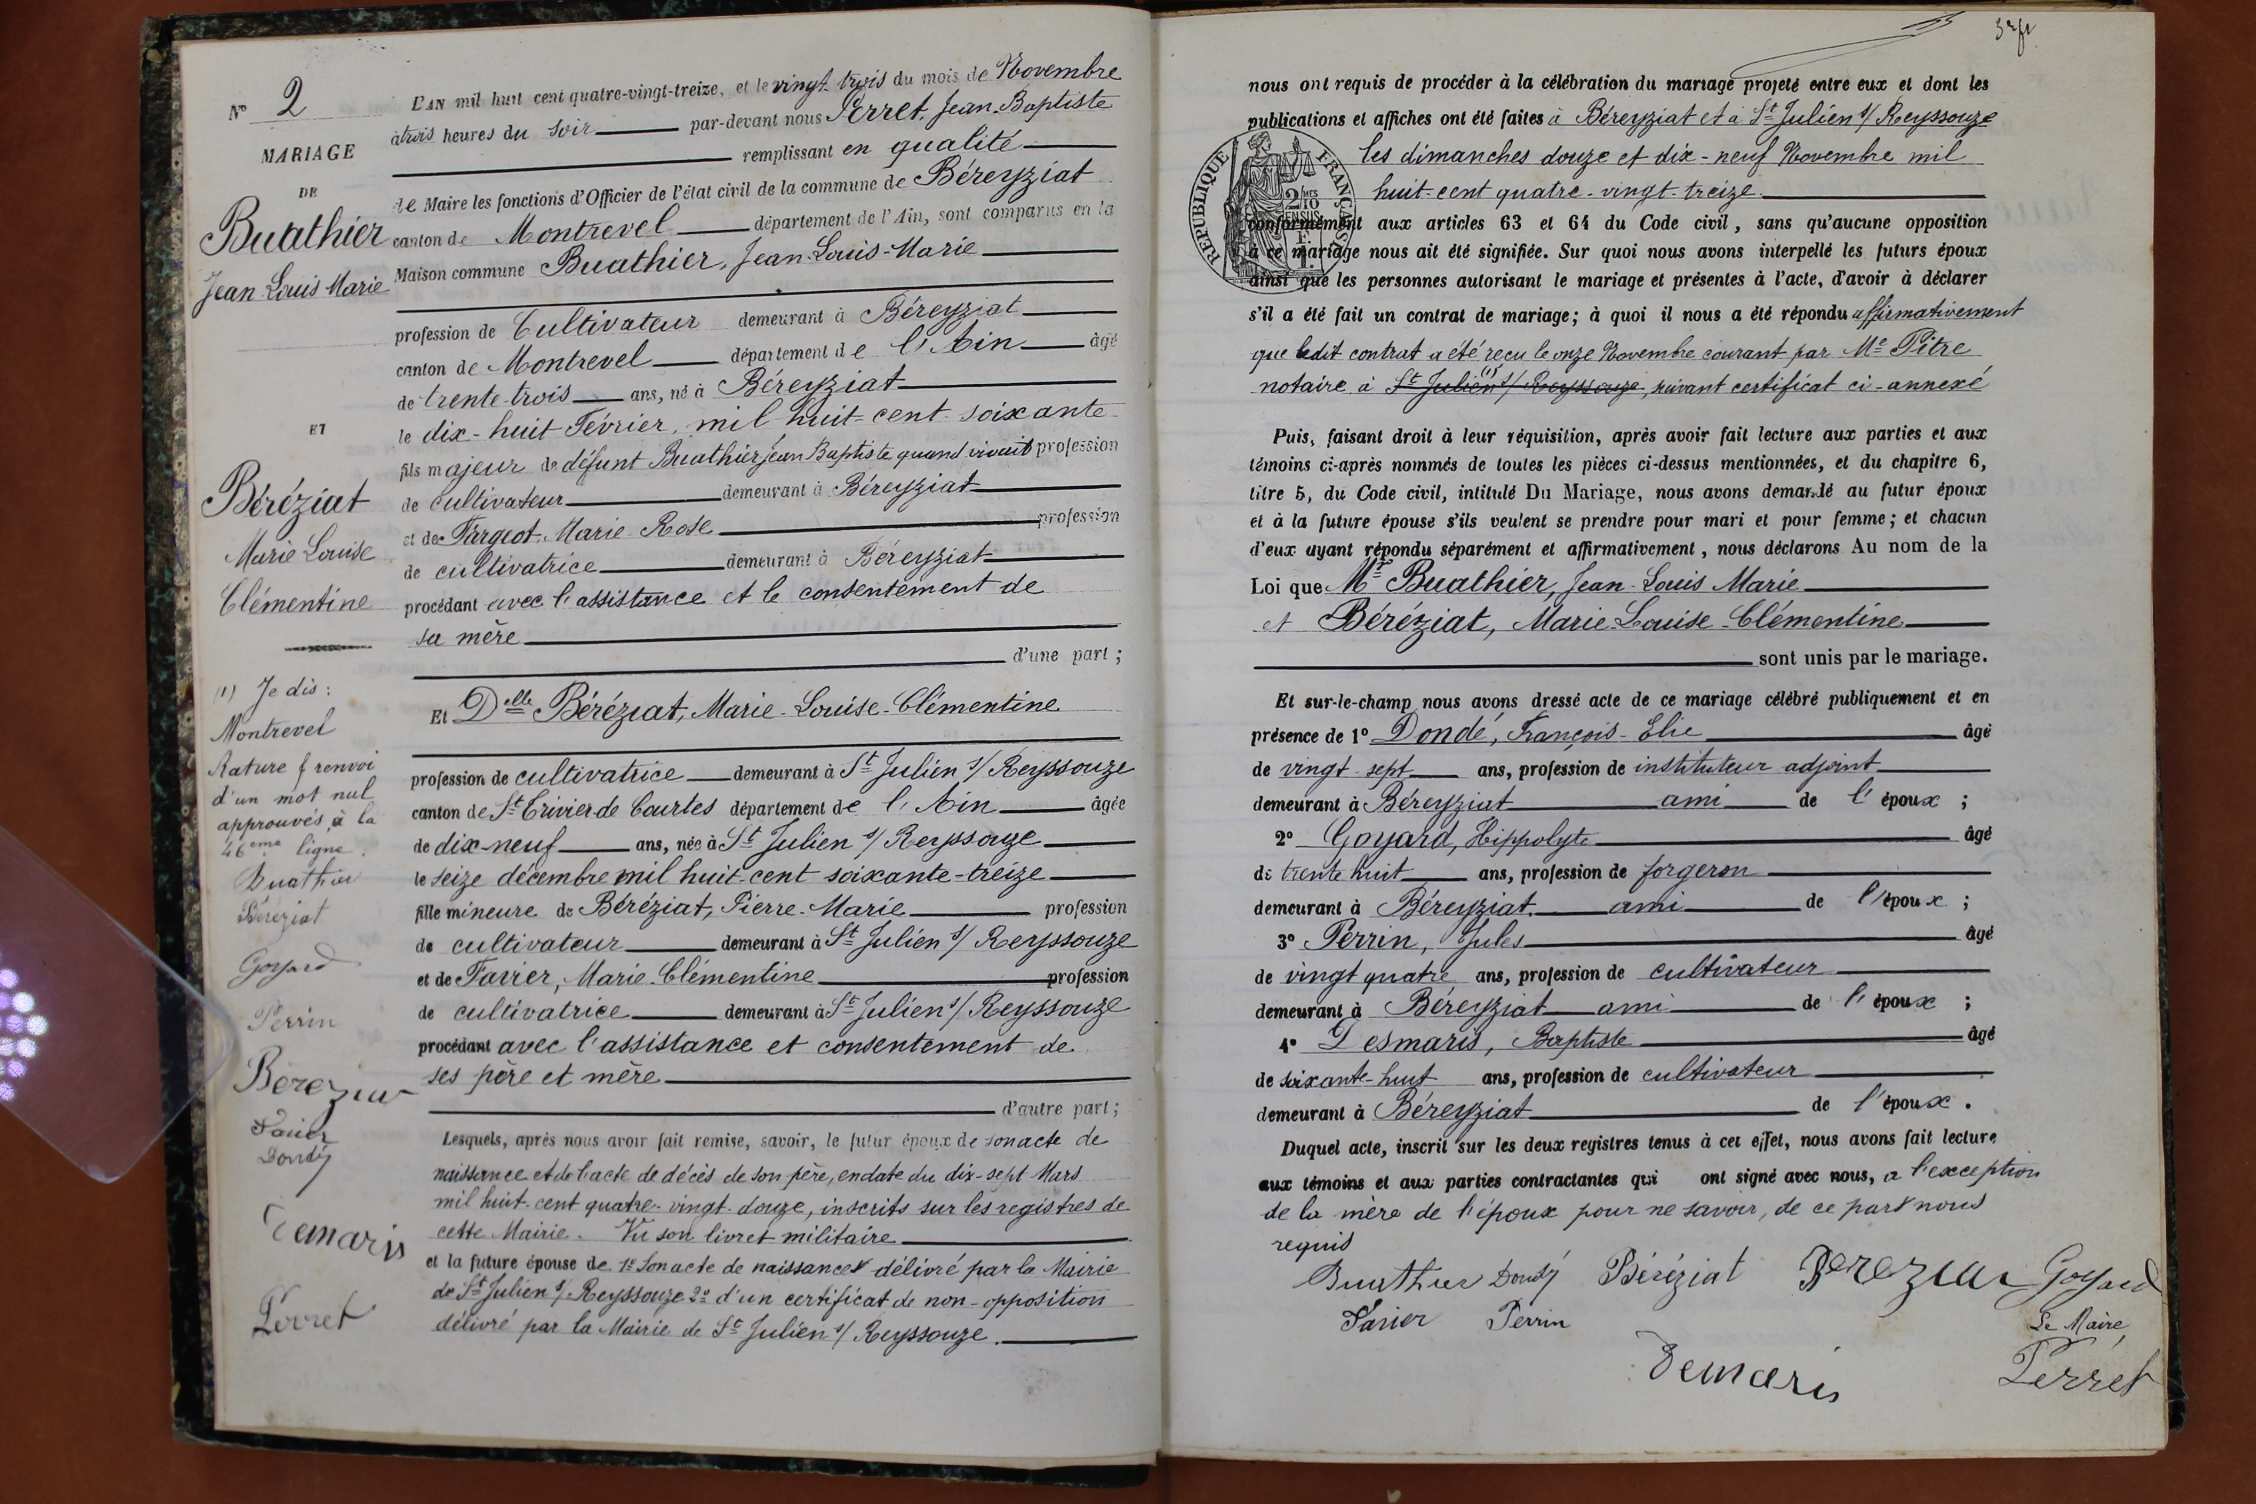 N° 2
MARIAGE
DE
Buathier
Jean Louis Marie
ET
Béréziat
Marie Louise
Clémentine
(1) Je dis :
Montrevel
Rature & renvoi
d'un mot nul
approuvés à la
46eme ligne.
Buathier
Béréziat
Goyard
Perrin
Bereziat
Favier
Dondé
Demaris
Perret
L'AN mil huit cent quatre-vingt-treize, et le vingt-trois du mois de Novembre
à trois heures du soir par-devant nous Perret, Jean-Baptiste
remplissant en qualité
de Maire les fonctions d'Officier de l'état civil de la commune de Béreyziat
canton de Montrevel département de l'Ain, sont comparus en la
Maison commune Buathier, Jean-Louis-Marie
profession de Cultivateur demeurant à Béreyziat
canton de Montrevel département de l'Ain âgé
de trente-trois ans, né à Béreyziat
le dix-huit Février, mil huit-cent-soixante
fils majeur de défunt Buathier Jean Baptiste quand vivait profession
de cultivateur demeurant à Béreyziat
et de Fargeot Marie Rose profession
de cultivatrice demeurant à Béreyziat
procédant avec l'assistance et le consentement de
sa mère
d'une part ;
Et Delle Béréziat, Marie-Louise-Clémentine
profession de cultivatrice demeurant à St Julien s/ Reyssouze
canton de St Trivier de Courtes département de l'Ain âgée
de dix-neuf ans, née à St Julien s/ Reyssouze
le seize décembre mil huit-cent soixante-treize
fille mineure de Béréziat, Pierre-Marie profession
de cultivateur demeurant à St Julien s/ Reyssouze
et de Favier, Marie-Clémentine profession
de cultivatrice demeurant à St Julien s/ Reyssouze
procédant avec l'assistance et consentement de
ses père et mère
d'autre part ;
Lesquels, après nous avoir fait remise, savoir, le futur époux de son acte de
naissance et de l'acte de décès de son père, en date du dix-sept Mars
mil huit-cent quatre-vingt-douze, inscrits sur les registres de
cette Mairie. Vu son livret militaire
et la future épouse de 1° Son acte de naissance délivré par la Mairie
de St Julien s/ Reyssouze 2° d'un certificat de non-opposition
délivré par la Mairie de St Julien s/ Reyssouze.
nous ont requis de procéder à la célébration du mariage projeté entre eux et dont les
publications et affiches ont été faites à Béreyziat et à St Julien s/ Reyssouze
les dimanches douze et dix-neuf Novembre mil
huit-cent quatre-vingt-treize
RÉPUBLIQUE FRANÇAISE
conformément aux articles 63 et 64 du Code civil, sans qu'aucune opposition
à ce mariage nous ait été signifiée. Sur quoi nous avons interpellé les futurs époux
ainsi que les personnes autorisant le mariage et présentes à l'acte, d'avoir à déclarer
s'il a été fait un contrat de mariage ; à quoi il nous a été répondu affirmativement
que ledit contrat a été reçu le onze Novembre courant par Me Pitre
notaire à St Julien s/ Reyssouze (1), suivant certificat ci-annexé
Puis, faisant droit à leur réquisition, après avoir fait lecture aux parties et aux
témoins ci-après nommés de toutes les pièces ci-dessus mentionnées, et du chapitre 6,
titre 5, du Code civil, intitulé Du Mariage, nous avons demandé au futur époux
et à la future épouse s'ils veulent se prendre pour mari et pour femme ; et chacun
d'eux ayant répondu séparément et affirmativement, nous déclarons Au nom de la
Loi que Mr Buathier, Jean-Louis Marie
et Béréziat, Marie-Louise-Clémentine
sont unis par le mariage.
Et sur-le-champ nous avons dressé acte de ce mariage célébré publiquement et en
présence de 1° Dondé, François-Elie âgé
de vingt-sept ans, profession de instituteur adjoint
demeurant à Béreyziat ami de l'époux ;
2° Goyard, Hippolyte âgé
de trente huit ans, profession de forgeron
demeurant à Béreyziat ami de l'époux ;
3° Perrin, Jules âgé
de vingt quatre ans, profession de cultivateur
demeurant à Béreyziat ami de l'époux ;
4° Desmaris, Baptiste âgé
de soixante-huit ans, profession de cultivateur
demeurant à Béreyziat de l'époux.
Duquel acte, inscrit sur les deux registres tenus à cet effet, nous avons fait lecture
aux témoins et aux parties contractantes qui ont signé avec nous, à l'exception
de la mère de l'époux pour ne savoir, de ce part nous
requis
Buathier Dondé Béréziat Bereziat Goyard
Favier Perrin Le Maire,
Demaris Perret